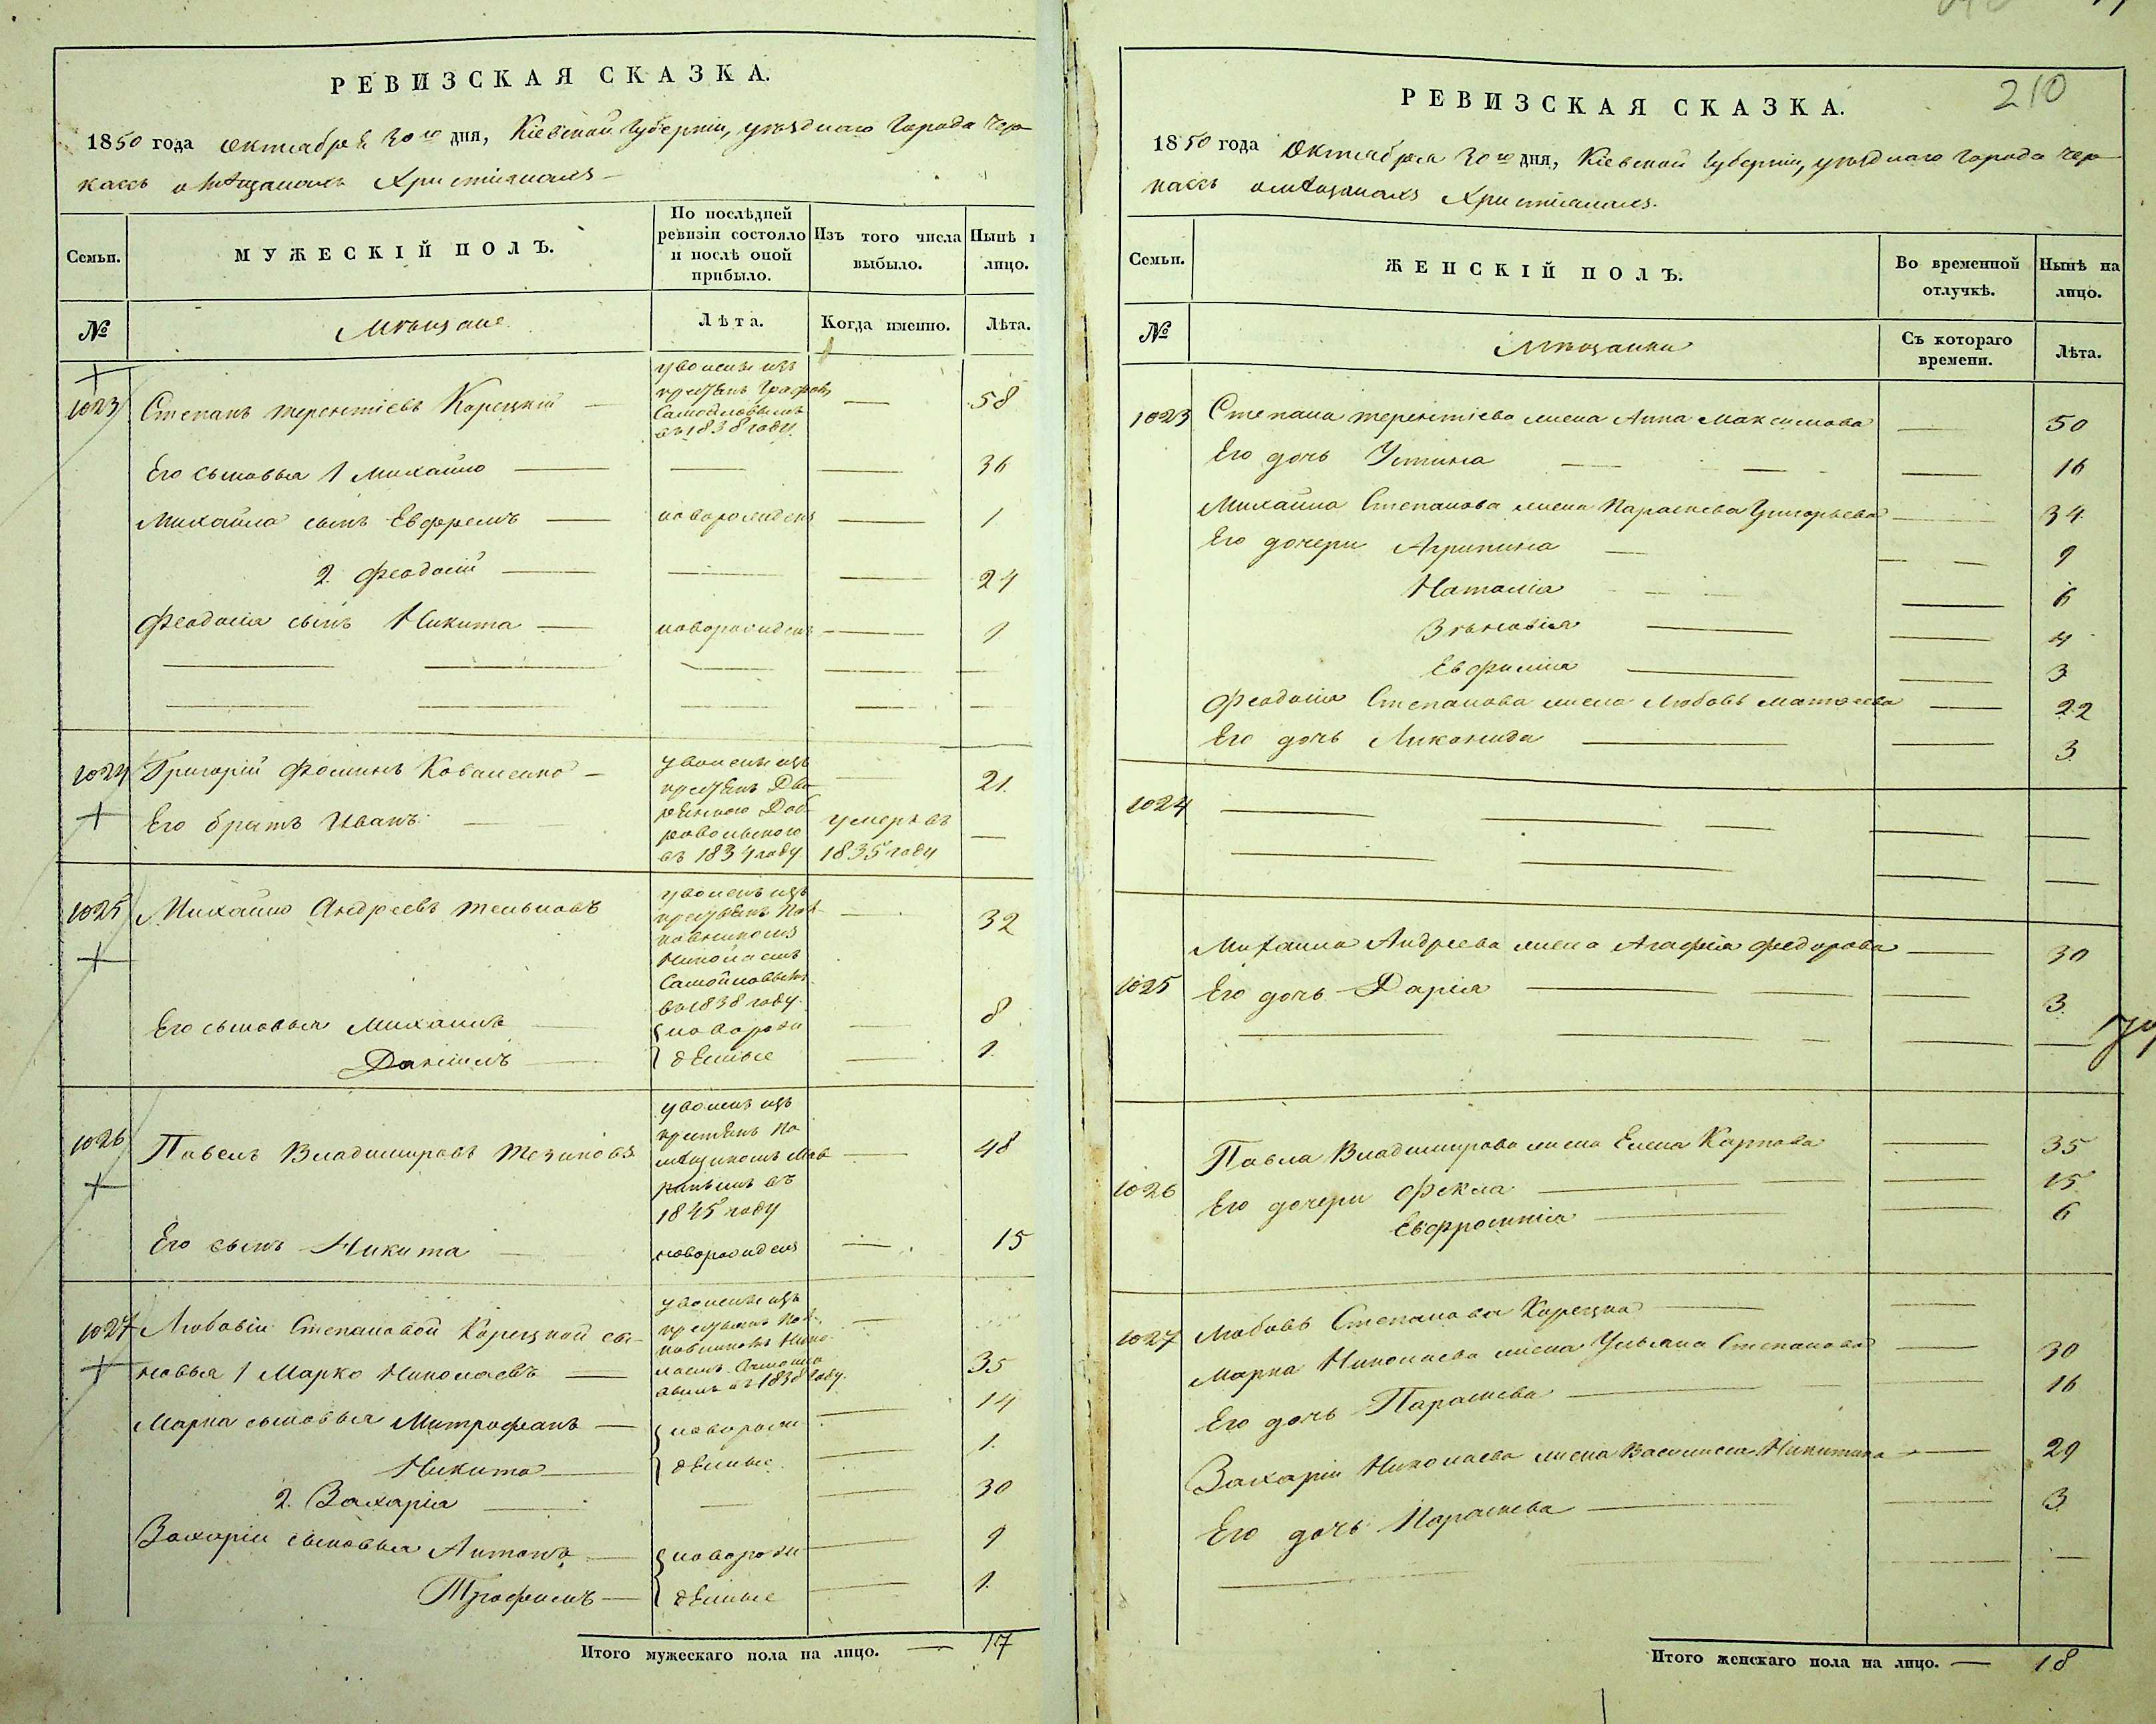 РЕВИЗСКАЯ СКАЗКА.
1850 года Октября 30го дня, Кіевской Губерніи, уѣзднаго Города Чер-
кассъ о мѣщанахъ Христіянахъ
Семьи.
МУЖЕСКІЙ ПОЛЪ.
По послѣдней
ревизіи состояло
и послѣ оной
прибыло.
Изъ того числа
выбыло.
Нынѣ н
лицо.
№
Мѣщане.
Лѣта.
Когда именно.
Лѣта.
1023 Степанъ Терентіевъ Корецкій — уволенъ изъ
крестьянъ Графовъ
Самойловымъ
въ 1838 году. — 58
Его сыновья 1 Михайло — — — 36
Михайла сынъ Евфремъ — новорожденъ — 1
2. Феодосій — — — 24
Феодосія сынъ Никита — новорожденъ — 1
1024 Григорій Фоминъ Коваленко — уволенъ изъ — 21.
Его братъ Иванъ
крестьянъ
въ 1834 году
умеръ въ
1835 году —
1025 Михайло Андреевъ Тельновъ уволенъ изъ
крестьянъ Пол-
ковникомъ
Николаемъ
Самойловымъ
въ 1838 году. — 32
Его сыновья Михаилъ — новорож — 8
Даніилъ — денные — 1.
1026 Павелъ Владимировъ уволенъ изъ
крестьянъ по
мѣщикомъ
въ
1845 году — 48
Его сынъ Никита — новорожденъ — 15
1027 Любовіи Степановой Корецкой сы-
новья 1 Марко Николаевъ — уволенъ изъ
крестьянъ Пол-
ковникомъ Нико-
лаемъ
въ 1838 году. 35
Марка сыновья Митрофанъ — новорож — 14
Никита — денные — 1.
2. Захарія — — — 30
Захаріи сыновья Антонъ — новорож — 9
Трофимъ — денные — 1.
Итого мужескаго пола на лицо. — 17
210
РЕВИЗСКАЯ СКАЗКА.
1850 года Октября 30го дня, Кіевской Губерніи, уѣзднаго Города Чер-
кассъ о мѣщанахъ Христіянахъ.
Семьи.
ЖЕНСКІЙ ПОЛЪ.
Во временной
отлучкѣ.
Нынѣ на
лицо.
№
Мѣщанки
Съ котораго
времени.
Лѣта.
1023 Степана Терентіева жена Анна Максимова — 50
Его дочь Устинія — — — 16
Михайла Степанова жена Параскева Григорьева — 34
Его дочери Агрипина — — — 9
Наталія — — — 6
Зѣновія — — 4
Евфимія — — 3
Феодосія Степанова жена Любовь Матѳеева — 22
Его дочь Ликонида — — 3
1024 — — — — —
1025 Михаила Андреева жена Агафія Федорова — 30
Его дочь Дарія — — — 3.
1026 Павла Владимирова жена Елена Карпова — 35
Его дочери Фекла — — — 15
Евфросинія — — 6
1027 Любовь Степанова Корецка — —
Марка Николаева жена Ульяна Степанова — 30
Его дочь Параскева — — — 16
Захаріи Николаева жена Василиса Никитина — 29
Его дочь Параскева — — 3
Итого женскаго пола на лицо. — 18